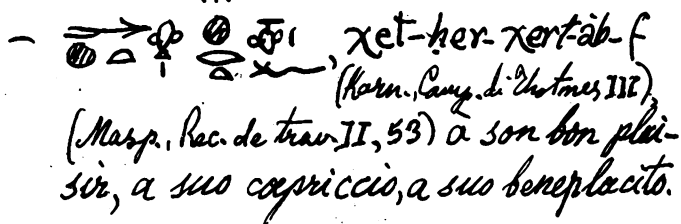 — , χet-ḥer-χert-àb-f
(Karn., Camp. di Thotmes III),
(Masp., Rec. de trav. II, 53) à son bon plai-
sir, a suo capriccio, a suo beneplacito.